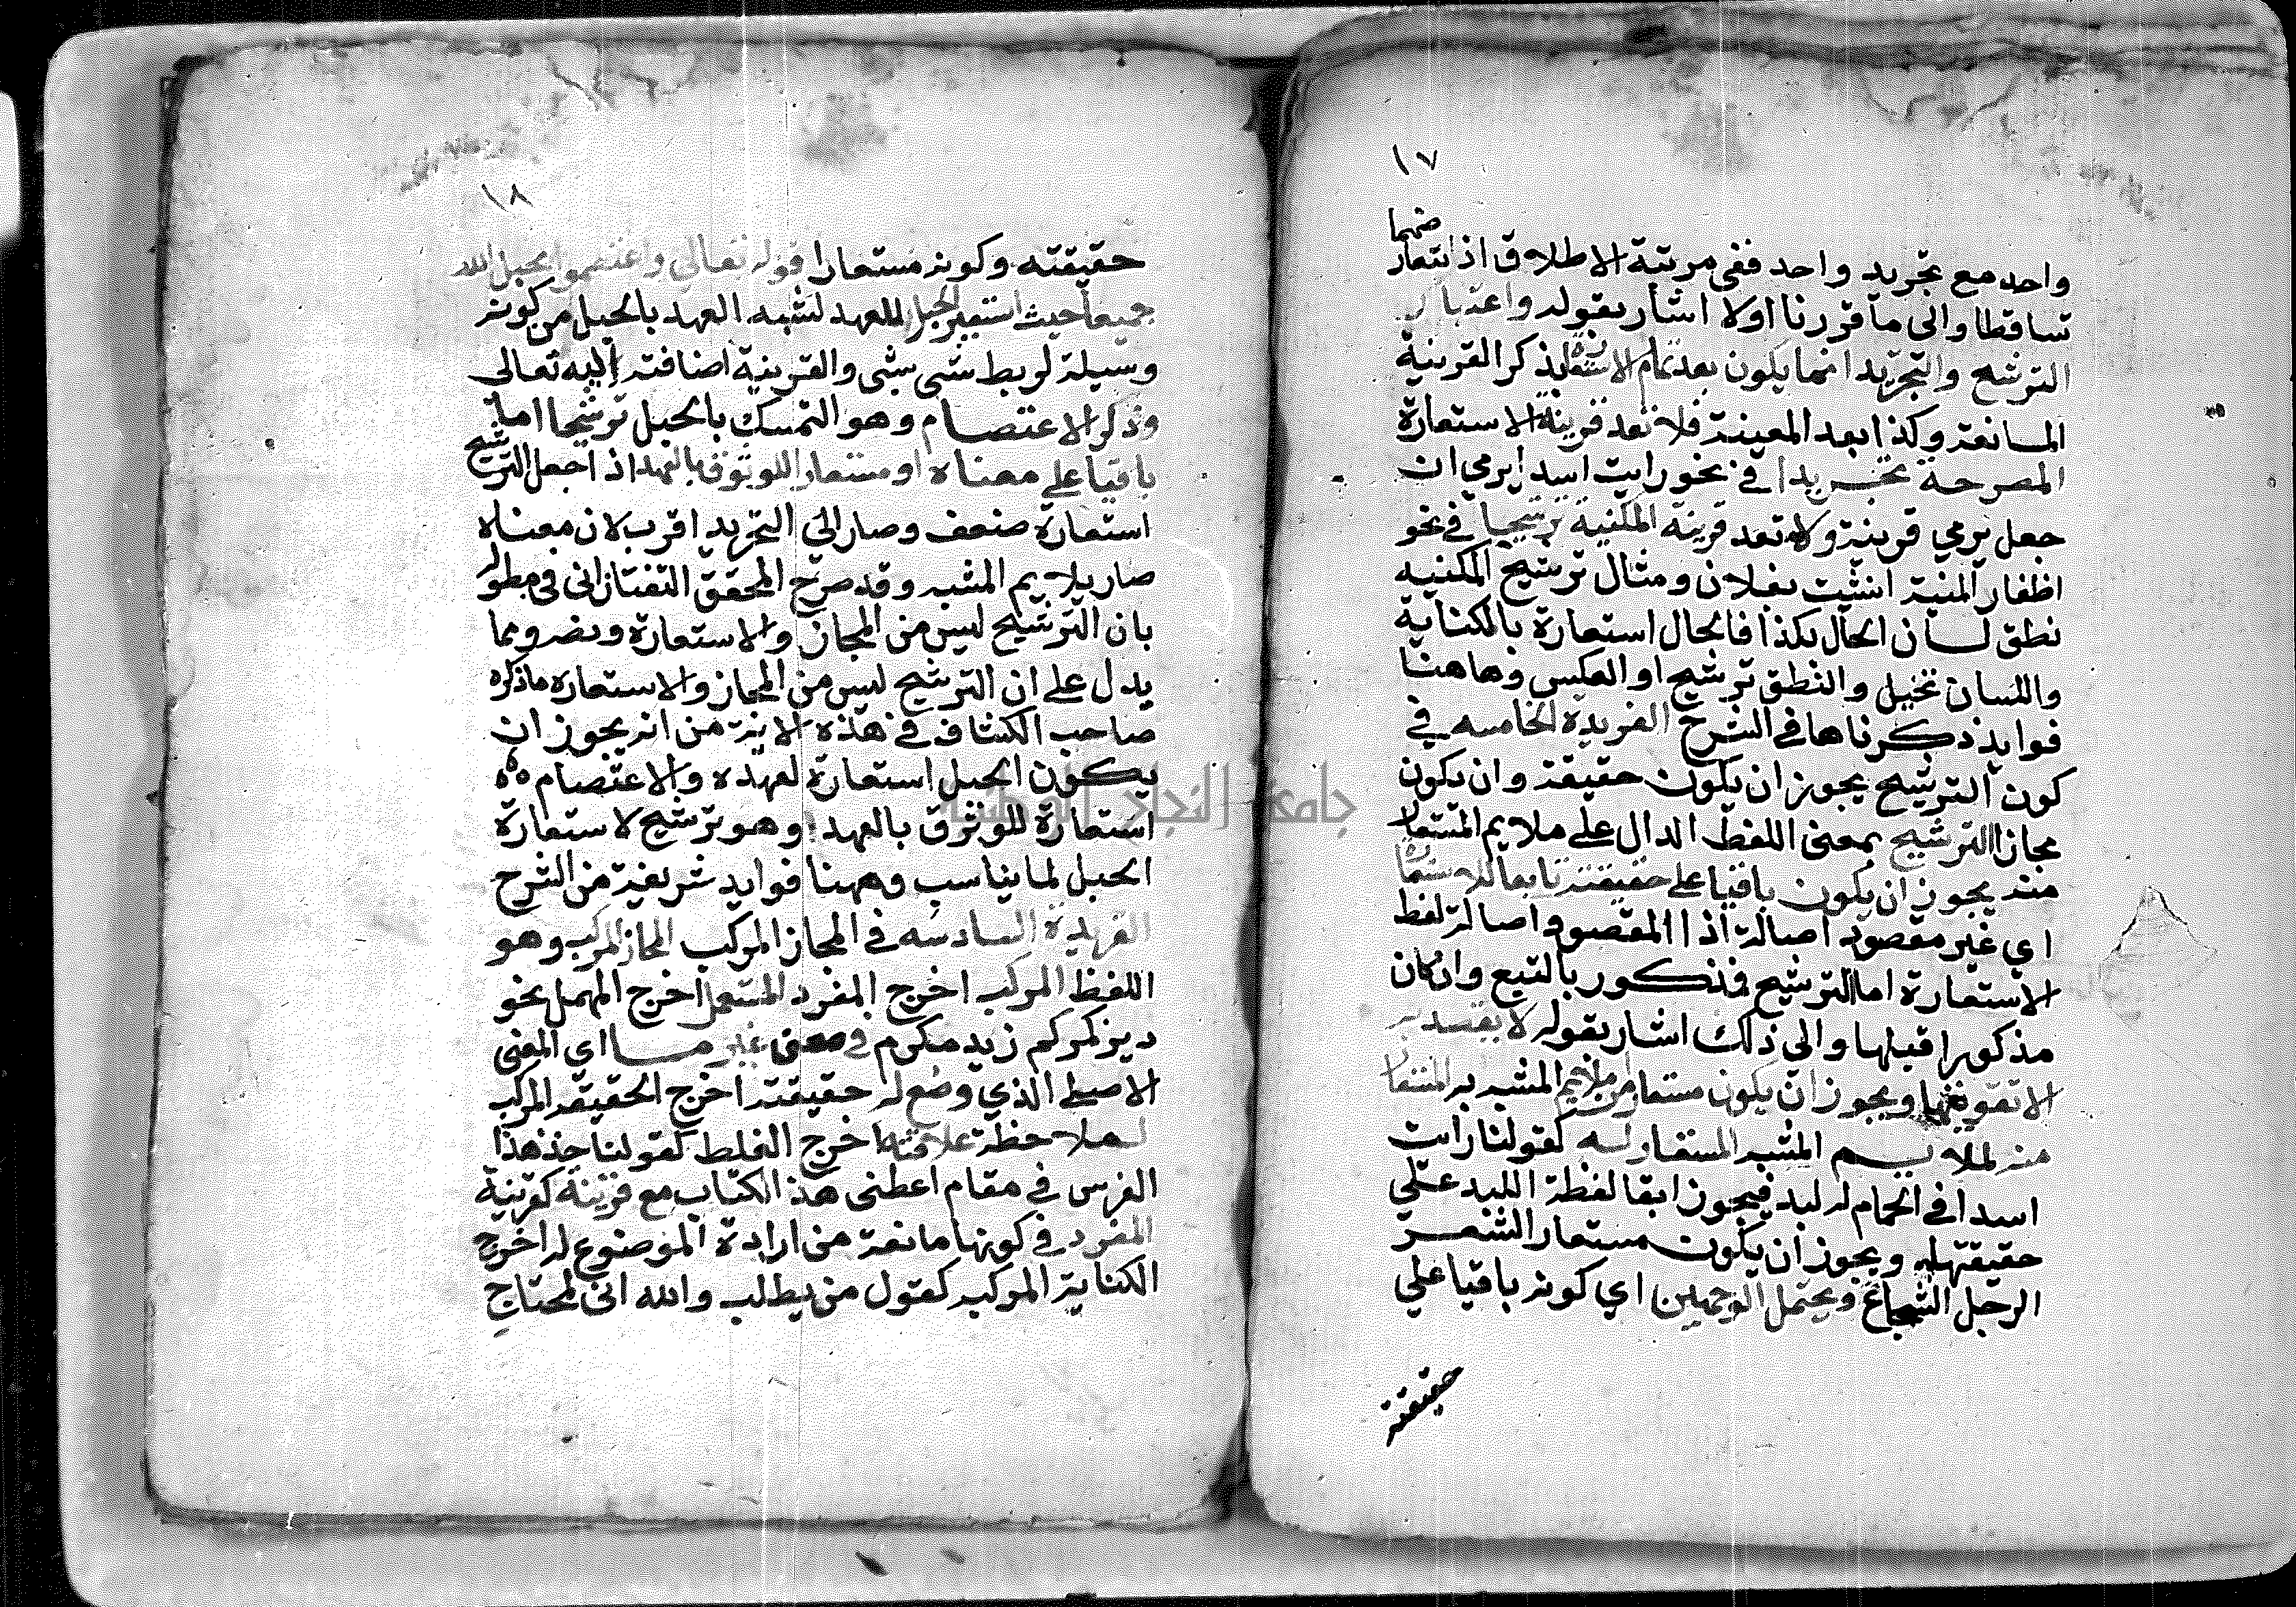 ١٧
واحد مع تجريد واحد ففي مرتبة الاطلاق اذ بتعارضهما
تساقطا والى ما قررنا اولا اشار بقوله واعتبار
الترشيح والتجريد انما يكون بعد تمام الاستعارة بذكر القرينة
المانعة وكذا بعد المعينة فلا تعد قرينة الاستعارة
المصرحة تجريدا في نحو رايت اسدا يرمي ان
جعل يرمي قرينة ولا تعد قرينة المكنية ترشيحا في نحو
اظفار المنية انشبت بفلان ومثال ترشيح المكنيه
نطق لسان الحال بكذا فالحال استعارة بالكناية
واللسان تخيل والنطق ترشيح او العكس وهاهنا
فوايد ذكرناها في الشرح الفريدة الخامسه في
كون الترشيح يجوز ان يكون حقيقة وان يكون
مجازا الترشيح بمعنى اللفظ الدال على ملايم المستعار
منه يجوز ان يكون باقيا على حقيقته تابعا للاستعارة
اي غير مقصود اصالة اذ المقصود اصالة لفظ
الاستعارة اما الترشيح فذكور بالتبع وان كان
مذكورا قبلها والى ذلك اشار بقوله لا يقصد به
الا تقويتها ويجوز ان يكون مستعارا من ملايم المشبه به المستعار
منه لملايم المشبه المستعار له كقولنا رايت
اسدا في الحمام له لبد فيجوز ابقا لفظة اللبد على
حقيقتها ويجوز ان يكون مستعار الشعر
الرجل الشجاع ويحتمل الوجهين اي كونه باقيا على
حقيقته
١٨
حقيقته وكونه مستعارا قوله تعالى واعتصموا بحبل الله
جميعا حيث استعير الحبل للعهد لشبه العهد بالحبل من كونه
وسيلة لربط شي بشي والقرينة اضافته اليه تعالى
وذكر الاعتصام وهو التمسك بالحبل ترشيحا اما
باقيا على معناه او مستعارا للوثوق بالعهد اذ اجعل الترشيح
استعارة ضعف وصار الى التجريد اقرب لان معناه
صار يلايم المشبه وقد صرح المحقق التفتازاني في مطوله
بان الترشيح ليس من المجاز والاستعارة ومما
يدل على ان الترشيح ليس من المجاز والاستعاره ماذكره
صاحب الكشاف في هذه الاية من انه يجوز ان
يكون الحبل استعارة لعهده والاعتصام
استعارة للوثوق بالعهد وهو ترشيح لاستعارة
الحبل لما يناسب وههنا فوايد شريفة من الشرح
الفريدة السادسه في المجاز المركب المجاز المركب وهو
اللفظ المركب اخرج المفرد المستعمل اخرج المهمل نحو
ديز مركم زيد مكرم في معنى غير ما اي المعنى
الاصلي الذي وضع له حقيقة اخرج الحقيقة المركب
لملاحظة علاقة اخرج الغلط كقولنا خذ هذا
الفرس في مقام اعطني هذا الكتاب مع قرينة كقرينة
المفرد في كونها مانعة من ارادة الموضوع له اخرج
الكناية المركب كقول من يطلب والله اني لمحتاج
جامعة النجاح الوطنية